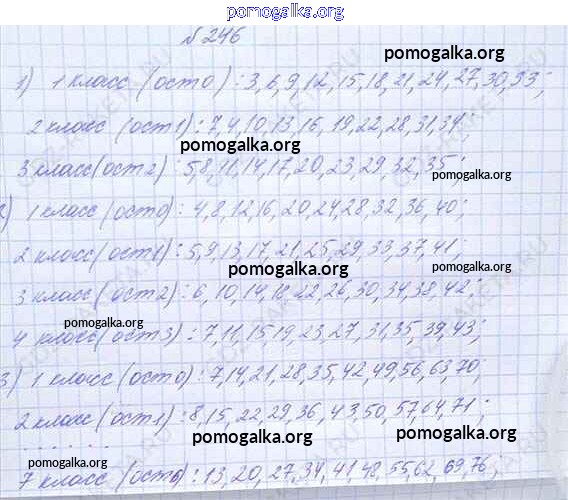 pomogalka.org
№246
pomogalka.org
1) 1 класс (ост 0): 3,6,9,12,15,18,21,24,27,30,33;
2 класс (ост 1): 7,4,10,13,16, 19,22,28,31,34;
pomogalka.org
3 класс (ост 2): 5,8,11,14,17,20,23,29,32,35;
pomogalka.org
2) 1 класс (ост 0): 4,8,12,16,20,24,28,32,36,40;
2 класс (ост 1): 5,9,13,17,21,25,29,33,37,41;
pomogalka.org
3 класс (ост 2): 6,10,14,18,22,26,30,34,38,42;
pomogalka.org
4 класс (ост 3): 7,11,15,19,23,27,31,35,39,43;
pomogalka.org
3) 1 класс (ост 0): 7,14,21,28,35,42,49,56,63,70;
2 класс (ост 1): 8,15,22,29,36,43,50,57,64,71;
pomogalka.org
. . . . . .
pomogalka.org
7 класс (ост 6): 13,20,27,34,41,48,55,62,69,76;
pomogalka.org